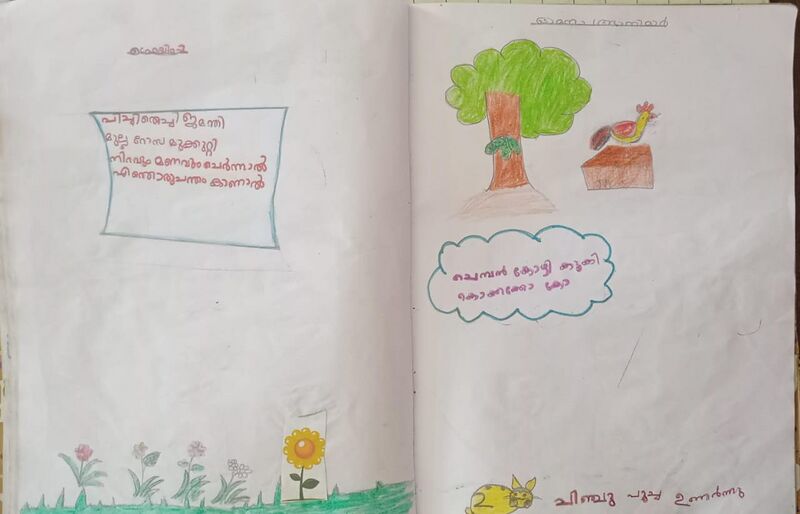 പിച്ചി തെച്ചി ജമന്തി
മുല്ല റോസ മുക്കുറ്റി
നിറവും മണവും ചേർന്നാൽ
എന്തൊരു ചന്തം കാണാൻ
ചെമ്പൻ കോഴി കൂകി
കൊക്കക്കോ കോ
2
ചിഞ്ചു പൂച്ച ഉണർന്നു